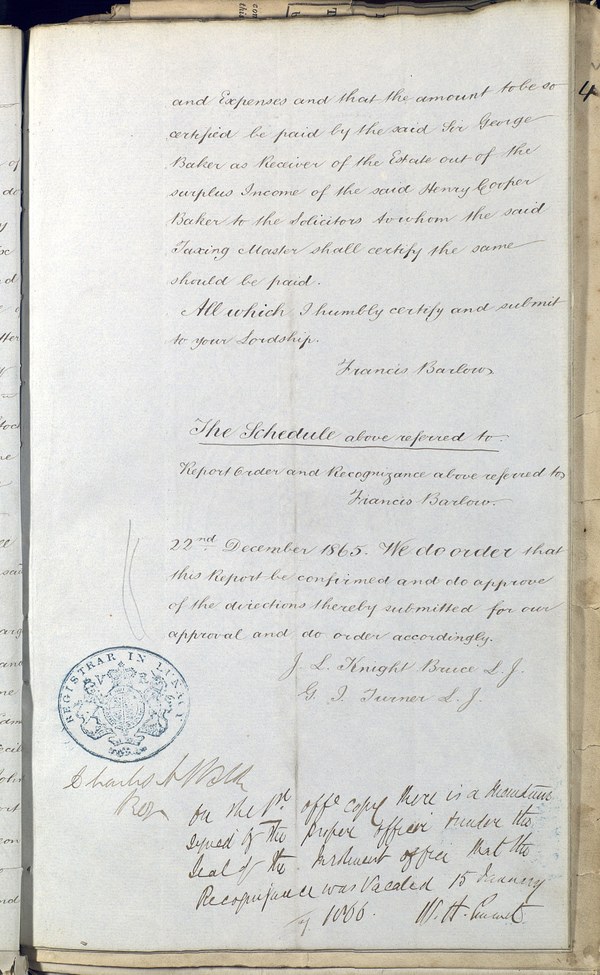 4
and Expenses and that the amount to be so
certified be paid by the said Sir George
Baker as Receiver of the Estate out of the
surplus Income of the said Henry Cooper
Baker to the Solicitors to whom the said
Taxing Master shall certify the same
should be paid.
All which I humbly certify and submit
to your Lordship.
Francis Barlow
The Schedule above referred to.
Report Order and Recognizance above referred to
Francis Barlow.
22nd December 1865. We do order that
this Report be confirmed and do approve
of the directions thereby submitted for our
approval and do order accordingly.
J. L. Knight Bruce L. J.
G. J. Turner L. J.
REGISTRAR IN LUNACY
Charles N
On the offe copy there is a Memdum
signed by the proper officer under the
Seal of the Inrolment office that the
Recognizance was Vacated 15 January
1866.
W. H.